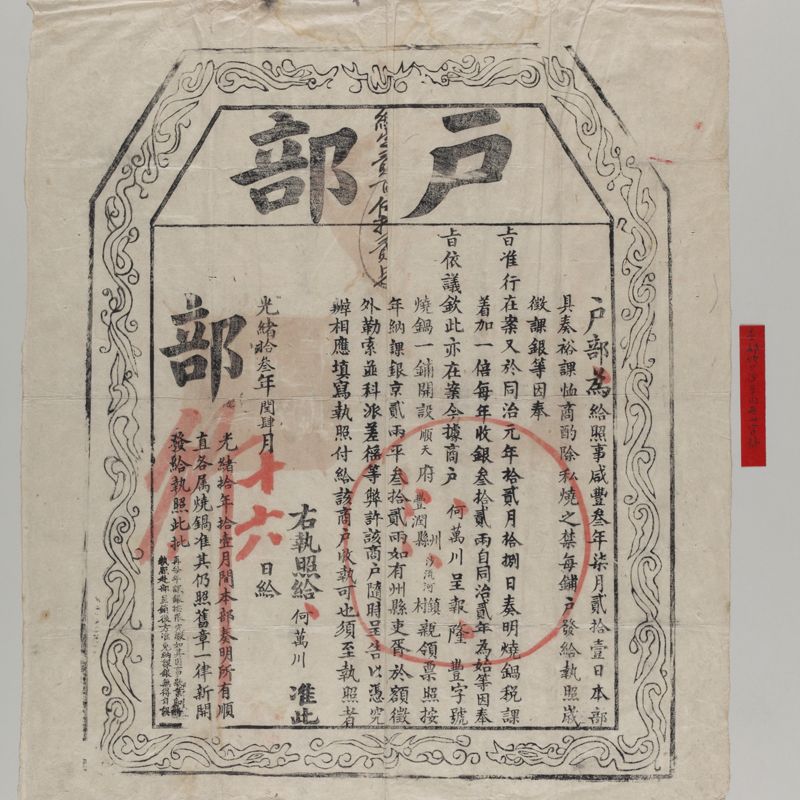 戶部
戶部為給照事咸豐叁年柒月貳拾壹日本部
具奏裕課恤商酌除私燒之禁每鋪戶發給執照歲
徵課銀等因奉
旨准行在案又於同治元年拾貳月拾捌日奏明燒鍋稅課
着加一倍每年收銀叁拾貳兩自同治貳年為始等因奉
旨依議欽此亦在案今據商戶何萬川呈報隆豐字號
燒鍋一鋪開設順天府豐潤縣州沙流河鎮村親領票照按
年納課銀京貳兩平叁拾貳兩如有州縣吏胥於額徵
外勒索並科派差徭等弊許該商戶隨時呈告以憑究
辦相應填寫執照付給該商戶收執可也須至執照者
右執照給何萬川准此
光緒拾叁年閏肆月十六日給
部
光緒拾年拾壹月間本部奏明所有順
直各属燒鍋准其仍照舊章一律新開
發給執照此批